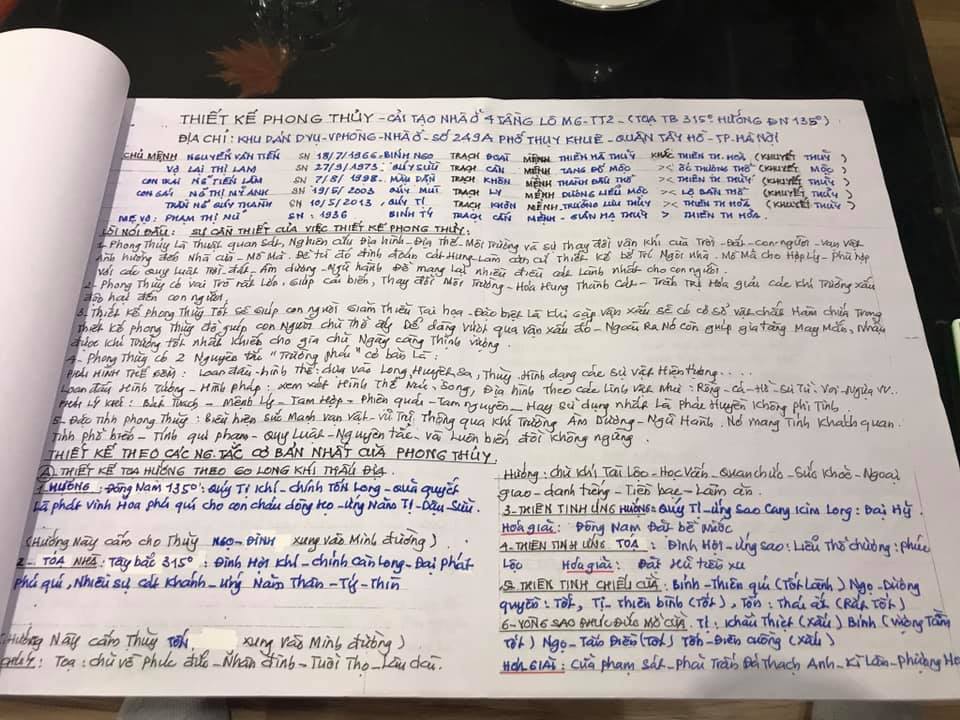 THIẾT KẾ PHONG THỦY - CẢI TẠO NHÀ Ở 4 TẦNG LÔ M6-TT2 - (TỌA TB 315° HƯỚNG ĐN 135°)
ĐỊA CHỈ: KHU DÂN DVỤ-VPHÒNG-NHÀ Ở - SỐ 249A PHỐ THỤY KHUÊ - QUẬN TÂY HỒ - TP. HÀ NỘI
CHỦ MỆNH NGUYỄN VĂN TIẾN SN 18/7/1966 - BÍNH NGỌ TRẠCH ĐOÀI MỆNH THIÊN HÀ THỦY KHẮC THIÊN TH. HỎA (KHUYẾT THỦY)
VỢ LẠI THỊ LAN SN 27/9/1973 - QUÝ SỬU TRẠCH CẤN MỆNH TANG ĐỐ MỘC >< ỐC THƯỢNG THỔ (KHUYẾT MỘC)
CON TRAI NG TIẾN LÂM SN 7/8/1998 - MẬU DẦN TRẠCH KHÔN MỆNH THÀNH ĐẦU THỔ >< THIÊN TH THỦY (KHUYẾT THỦY)
CON GÁI NG THỊ MỸ ANH SN 19/5/2003 QUÝ MÙI TRẠCH LY MỆNH DƯƠNG LIỄU MỘC >< LỘ BÀN THỔ (KHUYẾT THỦY)
TRẦN NG QUÝ THANH SN 10/5/2013 QUÝ TỊ TRẠCH KHÔN MỆNH TRƯỜNG LƯU THỦY > THIÊN TH HỎA (KHUYẾT THỦY)
MẸ VỢ: PHẠM THỊ NỤ SN: 1936 BÍNH TÝ TRẠCH CẤN MỆNH - GIẢN HẠ THỦY > THIÊN TH HỎA.
LỜI NÓI ĐẦU: SỰ CẦN THIẾT CỦA VIỆC THIẾT KẾ PHONG THỦY:
1- Phong Thủy Là Thuật quan sát, Nghiên cứu Địa hình - Địa Thế - Môi Trường và sự thay đổi vận khí của Trời - Đất - con người - vạn vật
Ảnh hưởng đến Nhà cửa - Mồ Mả. Để từ đó đoán định cát Hung - Làm căn cứ Thiết Kế bố Trí Ngôi nhà. Mồ Mả cho Hợp Lý - Phù hợp
với các Quy Luật Trời đất - Âm dương - Ngũ hành Để mang Lại nhiều điều cát Lành nhất cho con người.
2- Phong Thủy có Vai Trò rất Lớn, Giúp cải biến, Thay đổi Môi Trường - Hóa Hung Thành Cát - Trấn Trừ Hóa giải các khí Trường xấu
độc hại đến con người
3- Thiết Kế Phong Thủy Tốt sẽ Giúp con người Giảm Thiểu Tai họa - Đặc biệt Là Khi Gặp vận xấu sẽ có cơ sở vật chất Hàm chứa Trong
Thiết kế phong Thủy để giúp con Người chủ Thể ấy Dễ dàng vượt qua vận xấu đó - Ngoài Ra Nó còn giúp gia tăng May Mắn, Nhận
được khí Trường tốt nhất khiến cho gia chủ Ngày càng Thịnh vượng.
4- Phong Thủy có 2 Nguyên tắc "Trường phái" cơ bản Là:
PHÁI HÌNH THẾ GỒM: Loan đầu - hình Thể: dựa vào Long, Huyệt, Sa, Thủy - Hình dạng các Sự vật Hiện tượng....
Loan đầu Hình Tượng - Hình pháp: xem xét Hình Thể Núi, Sông, Địa hình Theo các Linh vật Như: Rồng - Cá - Hổ - Sư Tử. Voi - Ngựa vv.
PHÁI LÝ KHÍ: Bát Trạch - Mệnh Lý - Tam Hợp - Phiên quái - Tam nguyên - Hay sử dụng nhất Là Phái Huyền Không phi Tinh.
5- Đặc Tính phong Thủy: Biểu hiện sức Mạnh vạn Vật - Vũ Trụ Thông qua Khí Trường Âm Dương - Ngũ Hành. Nó mang Tính Khách quan.
Tính phổ biến - Tính qui phạm - Quy Luật - Nguyên Tắc - và Luôn biến đổi không ngừng.
THIẾT KẾ THEO CÁC NG.TẮC CƠ BẢN NHẤT CỦA PHONG THỦY.
Ⓐ THIẾT KẾ TỌA HƯỚNG THEO 60 LONG KHÍ THẤU ĐỊA
1. HƯỚNG: Đông Nam 135°: Quý Tị Khí - chính Tốn Long - Quả quyết
Là phát Vinh Hoa phú quí cho con cháu dòng họ - Ứng Năm Tị - Dậu - Sửu.
(Hướng Này cấm Thủy NGỌ - ĐINH xung vào Minh đường).
2- TỌA NHÀ: Tây bắc 315°: Đinh Hợi Khí - chính Càn Long - Đại Phát
Phú quí, Nhiều sự cát Khánh - Ứng Năm Thân - Tý - Thìn
(Hướng Này cấm Thủy TỐN xung vào Minh đường)
CHÚ Ý: Tọa: chủ về Phúc đức - Nhân đinh - Tuổi Thọ - Lâu dài.
Hướng: chủ Khí Tài Lộc - Học Vấn - Quan chức - Sức Khoẻ - Ngoại
giao - danh tiếng - Tiền bạc - Làm ăn.
3- THIÊN TINH ỨNG HƯỚNG: Quý Tị - Ứng Sao Cang Kim Long: Đại Kỵ.
Hoá giải: Đông Nam Đặt bể Nước
4- THIÊN TINH ỨNG TỌA: Đinh Hợi - Ứng sao: Liễu Thổ chương: phúc
Lộc Hoá giải: Đặt Hũ tiền xu
5. THIÊN TINH CHIẾU CỬA: Bính - Thiên quí (Tốt Lành) Ngọ - Dương
quyền: Tốt, Tị - Thiên bình (Tốt), Tốn: Thái ất (Rất Tốt)
6- VÒNG SAO PHÚC ĐỨC MỞ CỬA. Tị: Khẩu Thiệt (Xấu) Bính (Vượng Tằm
Tốt) Ngọ - Tấn Điền (Tốt) Tốn - Điên cuồng (Xấu)
HOÁ GIẢI: Cửa phạm sát - Phải Trấn Đá Thạch Anh - Kì Lân - Phượng